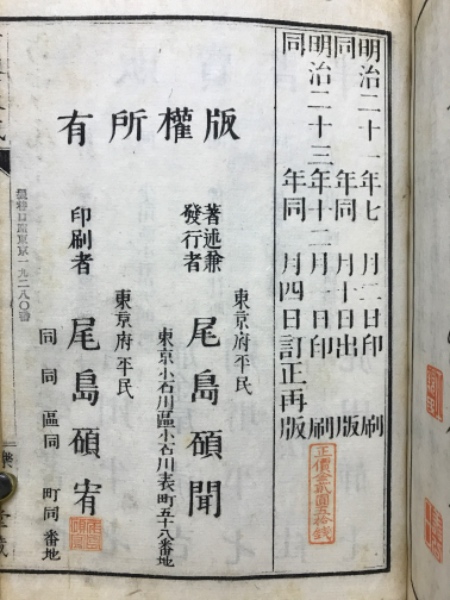 明治二十一年七月二日印刷
同年同月十日出版
明治二十三年十二月一日印刷
同年同月四日訂正再版
正價金貳圓五拾錢
版權所有
著述兼
發行者
東京府平民
尾島碩聞
東京小石川區小石川表町五十八番地
印刷者
東京府平民
尾島碩宥
同同區同町同番地